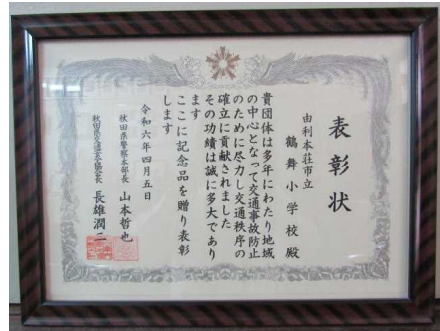 表彰状
由利本荘市立
鶴舞小学校殿
貴団体は多年にわたり地域
の中心となって交通事故防止
のために尽力し交通秩序の
確立に貢献されました
その功績は誠に多大であり
ます
ここに記念品を贈り表彰
します
令和六年四月五日
秋田県警察本部長 山本哲也
秋田県交通安全協会長 長雄潤二